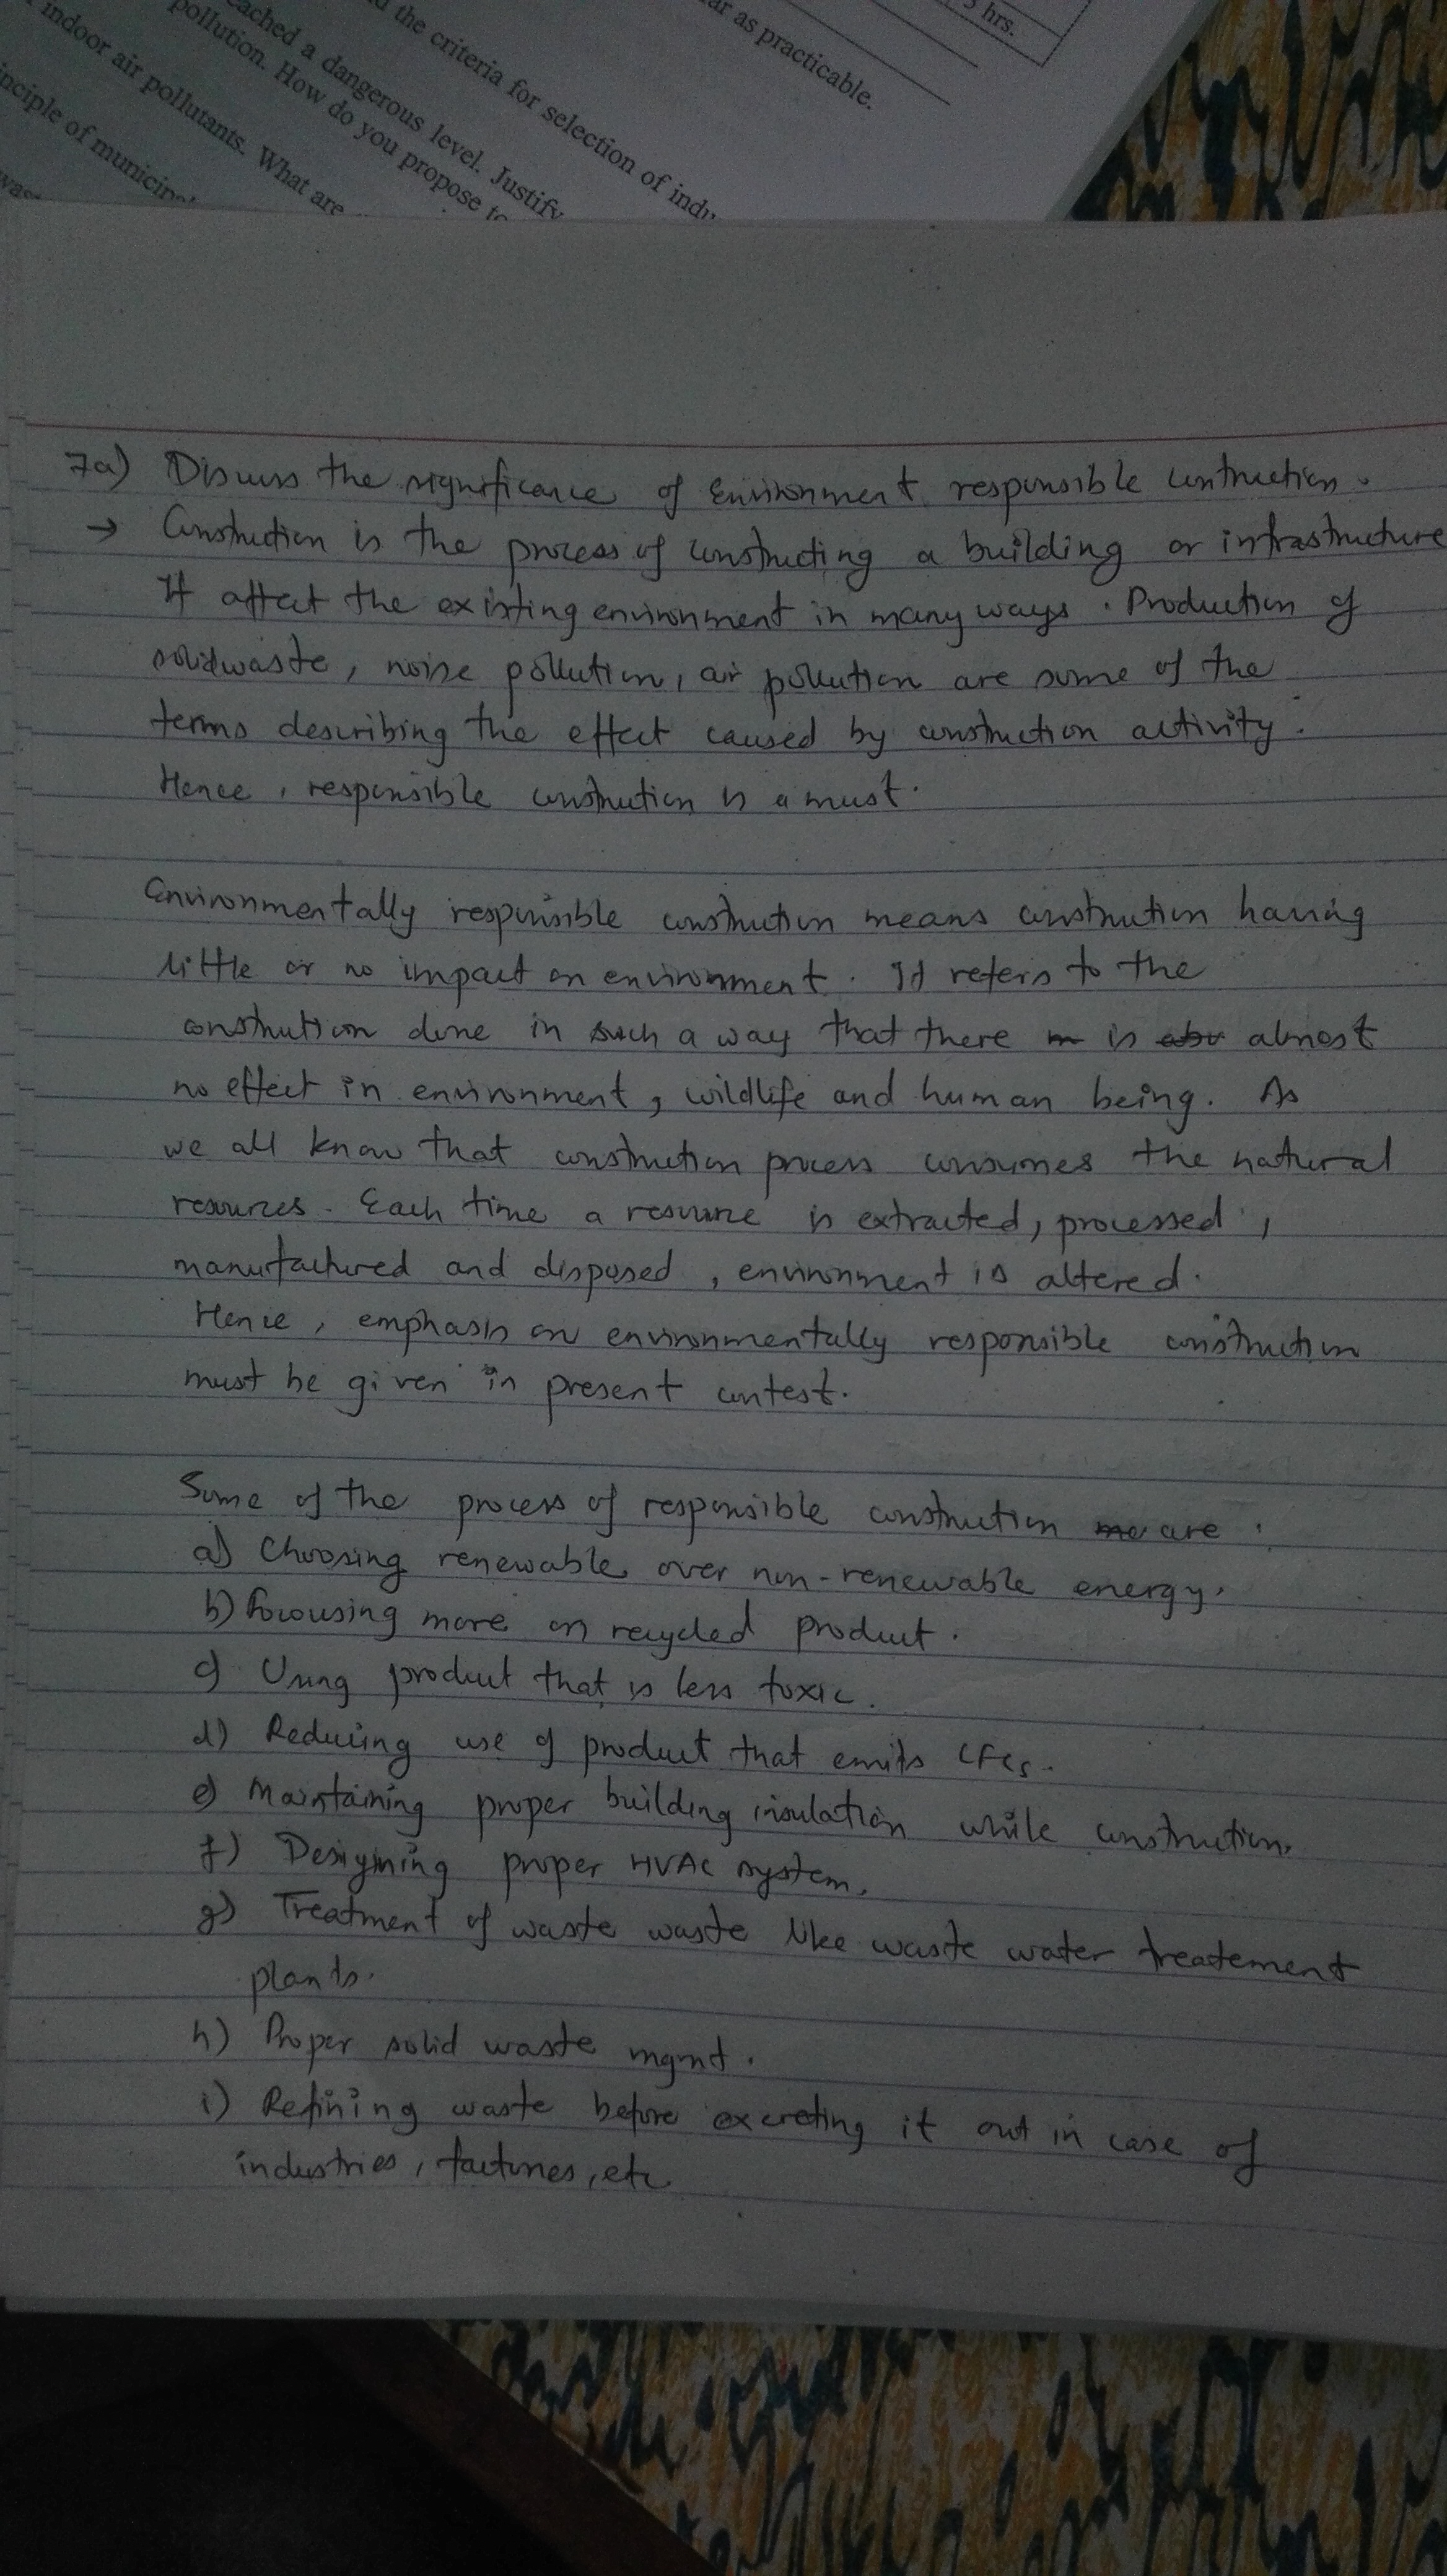 3 hrs.
ar as practicable.
the criteria for selection of indu
ached a dangerous level. Justify
pollution. How do you propose to
indoor air pollutants. What are
nciple of municipal
7a) Discuss the significance of Environment responsible contruction.
→ Construction is the process of constructing a building or infrastructure
It affect the existing environment in many ways. Production of
solidwaste, noise pollution, air pollution are some of the
terms describing the effect caused by construction activity.
Hence, responsible construction is a must.
Environmentally responsible construction means construction having
little or no impact on environment. It refers to the
construction done in such a way that there is almost
no effect in environment, wildlife and human being. As
we all know that construction process consumes the natural
resources. Each time a resource is extracted, processed,
manufactured and disposed, environment is altered.
Hence, emphasis on environmentally responsible construction
must be given in present contest.
Some of the process of responsible construction are :
a) Choosing renewable over non-renewable energy.
b) Focousing more on recycled product.
c) Using product that is less toxic.
d) Reducing use of product that emits CFCs.
e) Maintaining proper building insulation while construction.
f) Designing proper HVAC system.
g) Treatment of waste waste like waste water treatement
plants.
h) Proper solid waste mgmt.
i) Refining waste before excreting it out in case of
industries, factories, etc